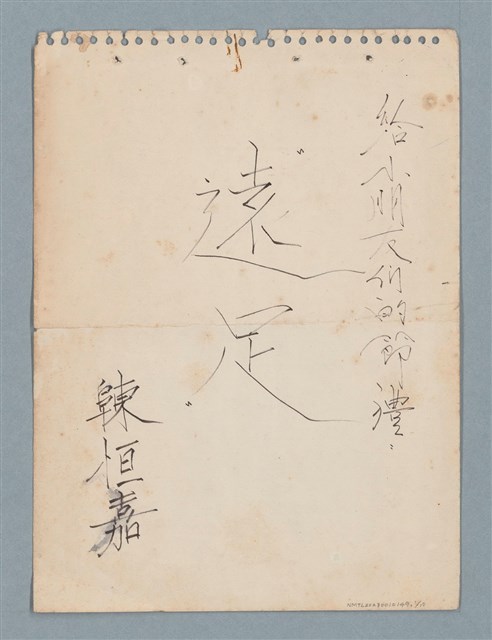 給小朋友們的節禮〃
〝遠足〞
陳恒嘉